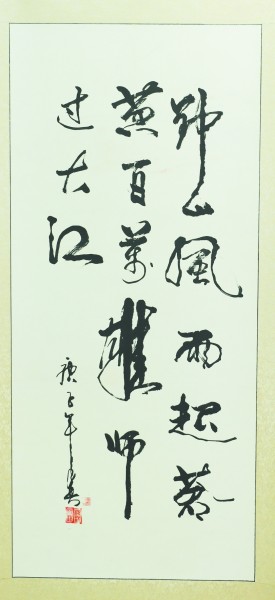 钟山風雨起蒼
黄百萬雄师
过大江
庚子年